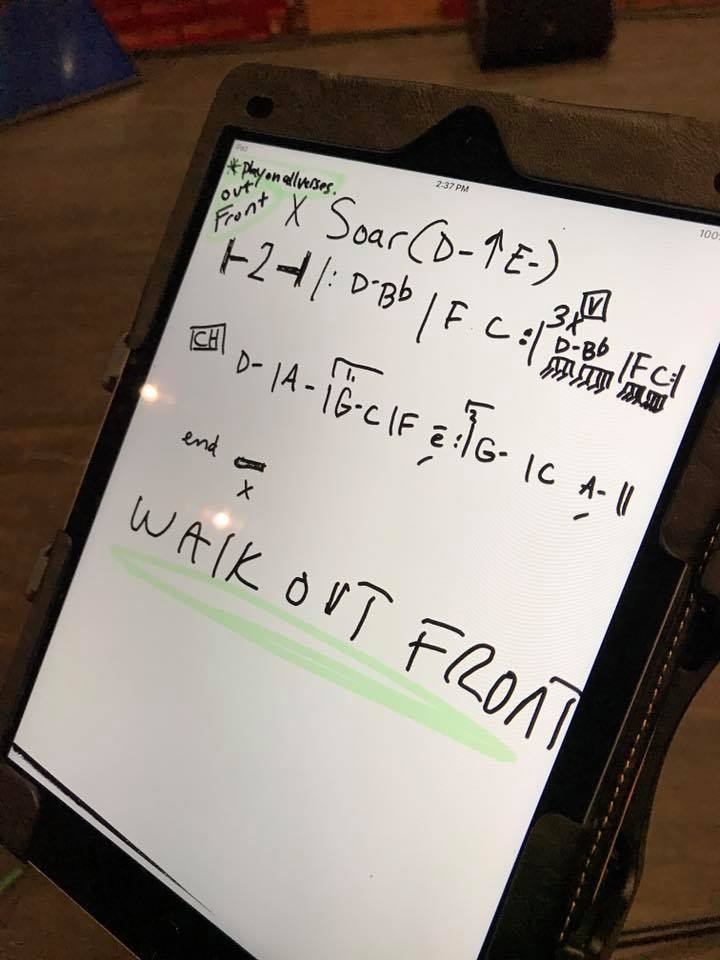 iPad
2:37 PM
100
*play on all verses.
out/
Front
X Soar (D- ↑ E-)
|-2-| |: D- Bb | F C :| 3x [V] D- Bb | F C :|
[CH] D- | A- | 1. G- C | F E :| 2 G- | C A- ||
end
X
WALK OUT FRONT